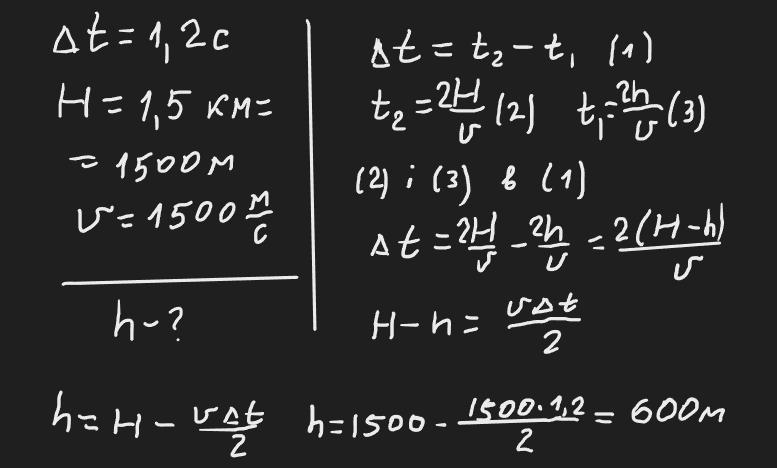 Δt = 1,2 с
H = 1,5 км =
= 1500 м
v = 1500 м/с
h - ?
Δt = t₂ - t₁ (1)
t₂ = 2H/v (2) t₁ = 2h/v (3)
(2) і (3) в (1)
Δt = 2H/v - 2h/v = 2(H-h)/v
H - h = vΔt/2
h = H - vΔt/2 h = 1500 - 1500·1,2/2 = 600 м